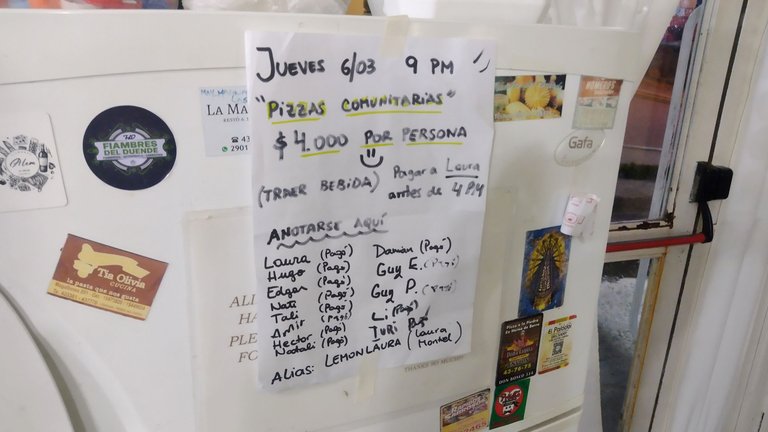 JUEVES 6/03 9 PM
"PIZZAS COMUNITARIAS"
$4.000 POR PERSONA
(TRAER BEBIDA)
Pagar a Laura
antes de 4 PM
ANOTARSE AQUÍ
Laura (Pagó)
Hugo (Pagó)
Edgar (Pagó)
Nati (Pagó)
Tali (Pagó)
Amir (Pagó)
Hector (Pagó)
Natali (Pagó)
Damian (Pagó)
Guy E. (Pagó)
Guy P. (Pagó)
Li (Pagó)
Yuri Pagó
Alias: LEMONLAURA (Laura Montel)
THANKS SO MUCH!
FIAMBRES
DEL DUENDE
LA MA
Tia Olivia
CUCINA
la pasta que nos gusta
ALI
HA
PLE
FO
HOMEROS
Gafa
El Palacio
Doña Lupita
43-76-73
DON BOSCO 314